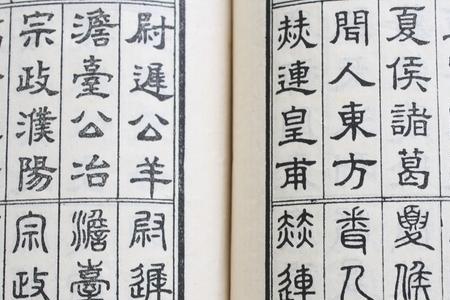 夏侯諸葛
聞人東方
赫連皇甫
尉遲公羊
澹臺公冶
宗政濮陽
夏侯
人
赫連
尉遲
澹臺
宗政